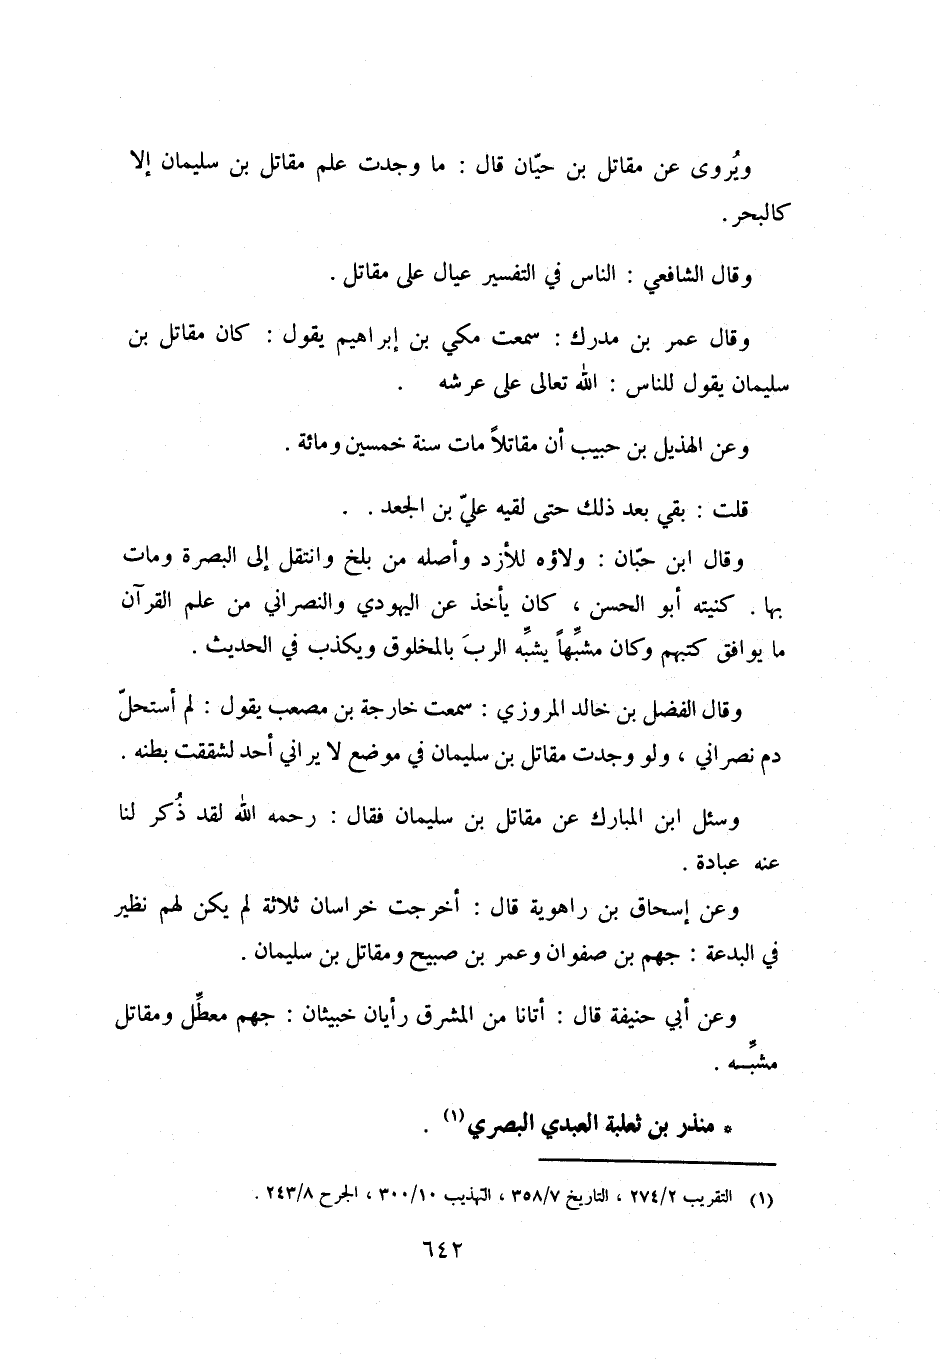 ويُروى عن مقاتل بن حيّان قال : ما وجدت علم مقاتل بن سليمان إلا
كالبحر .
وقال الشافعي : الناس في التفسير عيال على مقاتل .
وقال عمر بن مدرك : سمعت مكي بن إبراهيم يقول : كان مقاتل بن
سليمان يقول للناس : الله تعالى على عرشه .
وعن الهذيل بن حبيب أن مقاتلاً مات سنة خمسين ومائة .
قلت : بقي بعد ذلك حتى لقيه عليّ بن الجعد . .
وقال ابن حبّان : ولاؤه للأزد وأصله من بلخ وانتقل إلى البصرة ومات
بها . كنيته أبو الحسن ، كان يأخذ عن اليهودي والنصراني من علم القرآن
ما يوافق كتبهم وكان مشبِّهاً يشبِّه الربَ بالمخلوق ويكذب في الحديث .
وقال الفضل بن خالد المروزي : سمعت خارجة بن مصعب يقول : لم أستحلّ
دم نصراني ، ولو وجدت مقاتل بن سليمان في موضع لا يراني أحد لشققت بطنه .
وسئل ابن المبارك عن مقاتل بن سليمان فقال : رحمه الله لقد ذُكر لنا
عنه عبادة .
وعن إسحاق بن راهوية قال : أخرجت خراسان ثلاثة لم يكن لهم نظير
في البدعة : جهم بن صفوان وعمر بن صبيح ومقاتل بن سليمان .
وعن أبي حنيفة قال : أتانا من المشرق رأيان خبيثان : جهم معطِّل ومقاتل
مشبِّه .
* منذر بن ثعلبة العبدي البصري (١) .
(١) التقريب ٢٧٤/٢ ، التاريخ ٣٥٨/٧ ، التهذيب ٣٠٠/١٠ ، الجرح ٢٤٣/٨ .
٦٤٢